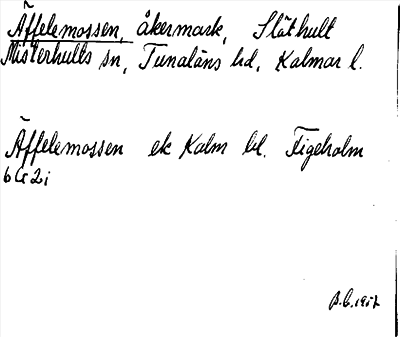 Äffelemossen, åkermark, Släthult
Misterhults sn, Tunaläns hd, Kalmar l.
Äffelemossen ek Kalm bl. Figeholm
6 G 2 i